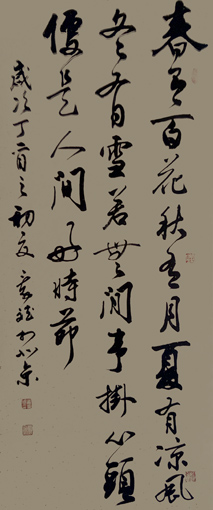 春有百花秋有月夏有涼風
冬有雪若無閒事掛心頭
便是人間好時節
歲次丁酉之初夏